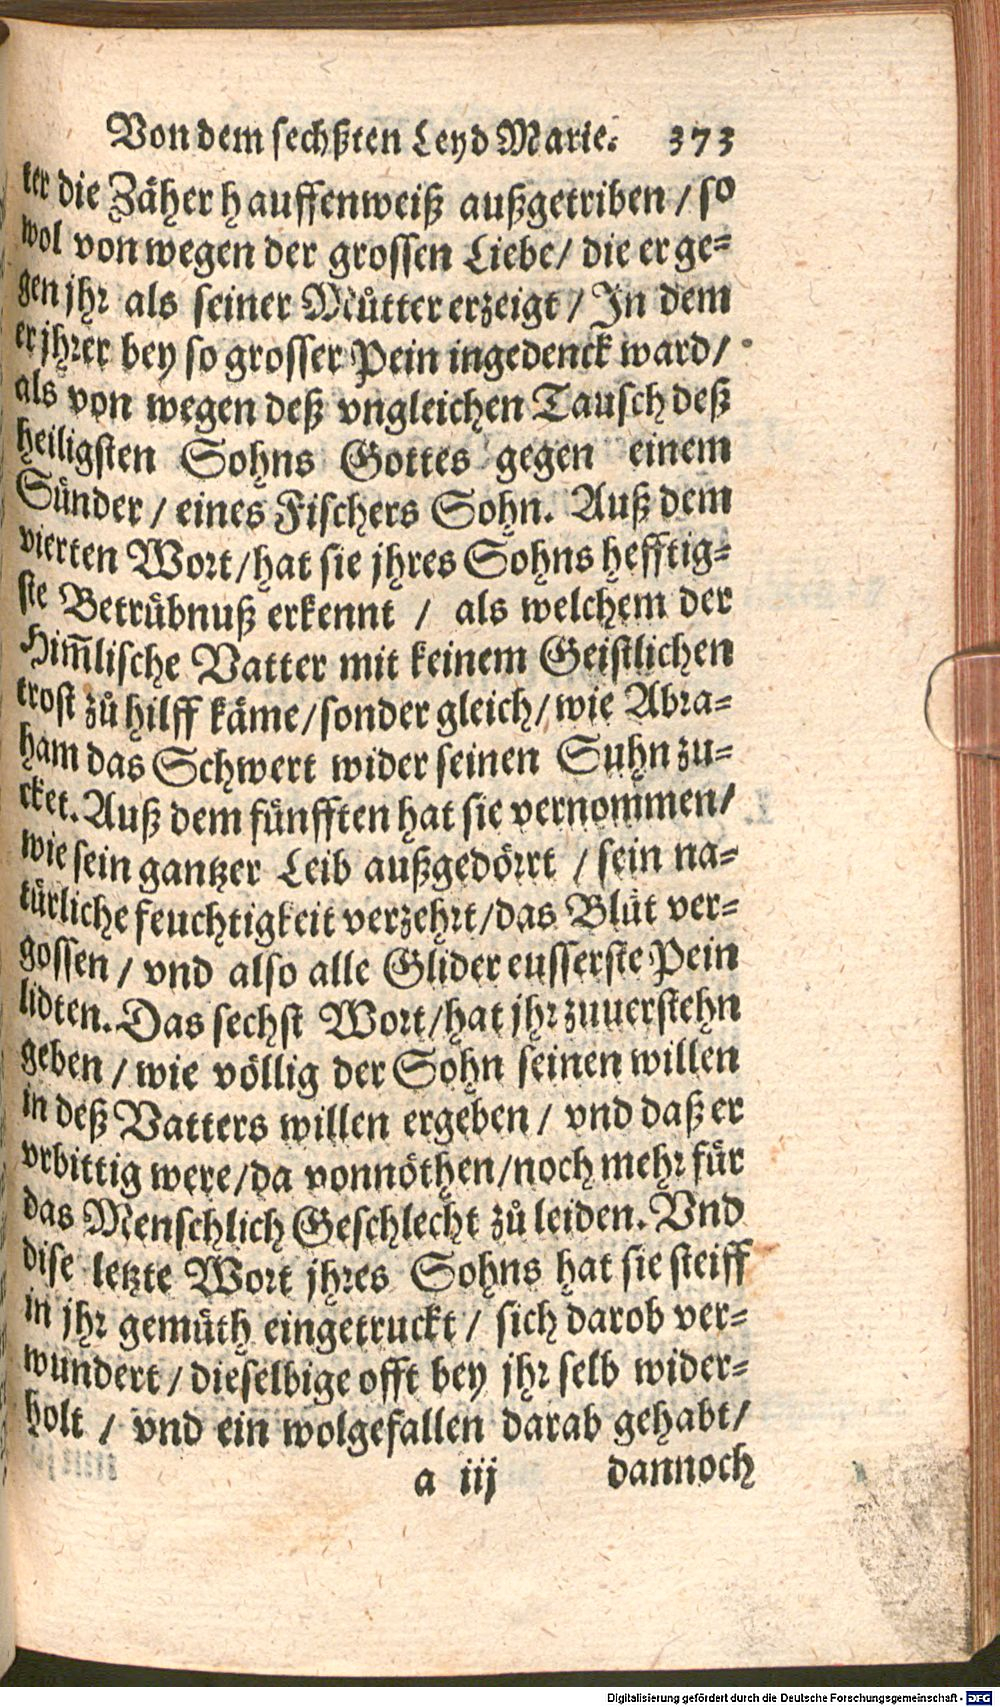 Von dem sechßten Leyd Marie. 373
ter die Zäher hauffenweiß außgetriben / so
wol von wegen der grossen Liebe / die er ge-
gen jhr als seiner Můtter erzeigt / In dem
er jhrer bey so grosser Pein ingedenck ward /
als von wegen deß vngleichen Tausch deß
heiligsten Sohns Gottes gegen einem
Sünder / eines Fischers Sohn. Auß dem
vierten Wort / hat sie jhres Sohns hefftig-
ste Betrübnuß erkennt / als welchem der
Him̃lische Vatter mit keinem Geistlichen
trost zů hilff käme / sonder gleich / wie Abra-
ham das Schwert wider seinen Suhn zu-
cket. Auß dem fünfften hat sie vernommen /
wie sein gantzer Leib außgedörrt / sein na-
türliche feuchtigkeit verzehrt / das Blůt ver-
gossen / vnd also alle Glider eusserste Pein
lidten. Das sechst Wort / hat jhr zuuerstehn
geben / wie völlig der Sohn seinen willen
in deß Vatters willen ergeben / vnd daß er
vrbittig were / da vonnöthen / noch mehr für
das Menschlich Geschlecht zů leiden. Vnd
dise letzte Wort jhres Sohns hat sie steiff
in jhr gemüth eingetruckt / sich darob ver-
wundert / dieselbige offt bey jhr selb wider-
holt / vnd ein wolgefallen darab gehabt /
a iij dannoch
Digitalisierung gefördert durch die Deutsche Forschungsgemeinschaft - DFG